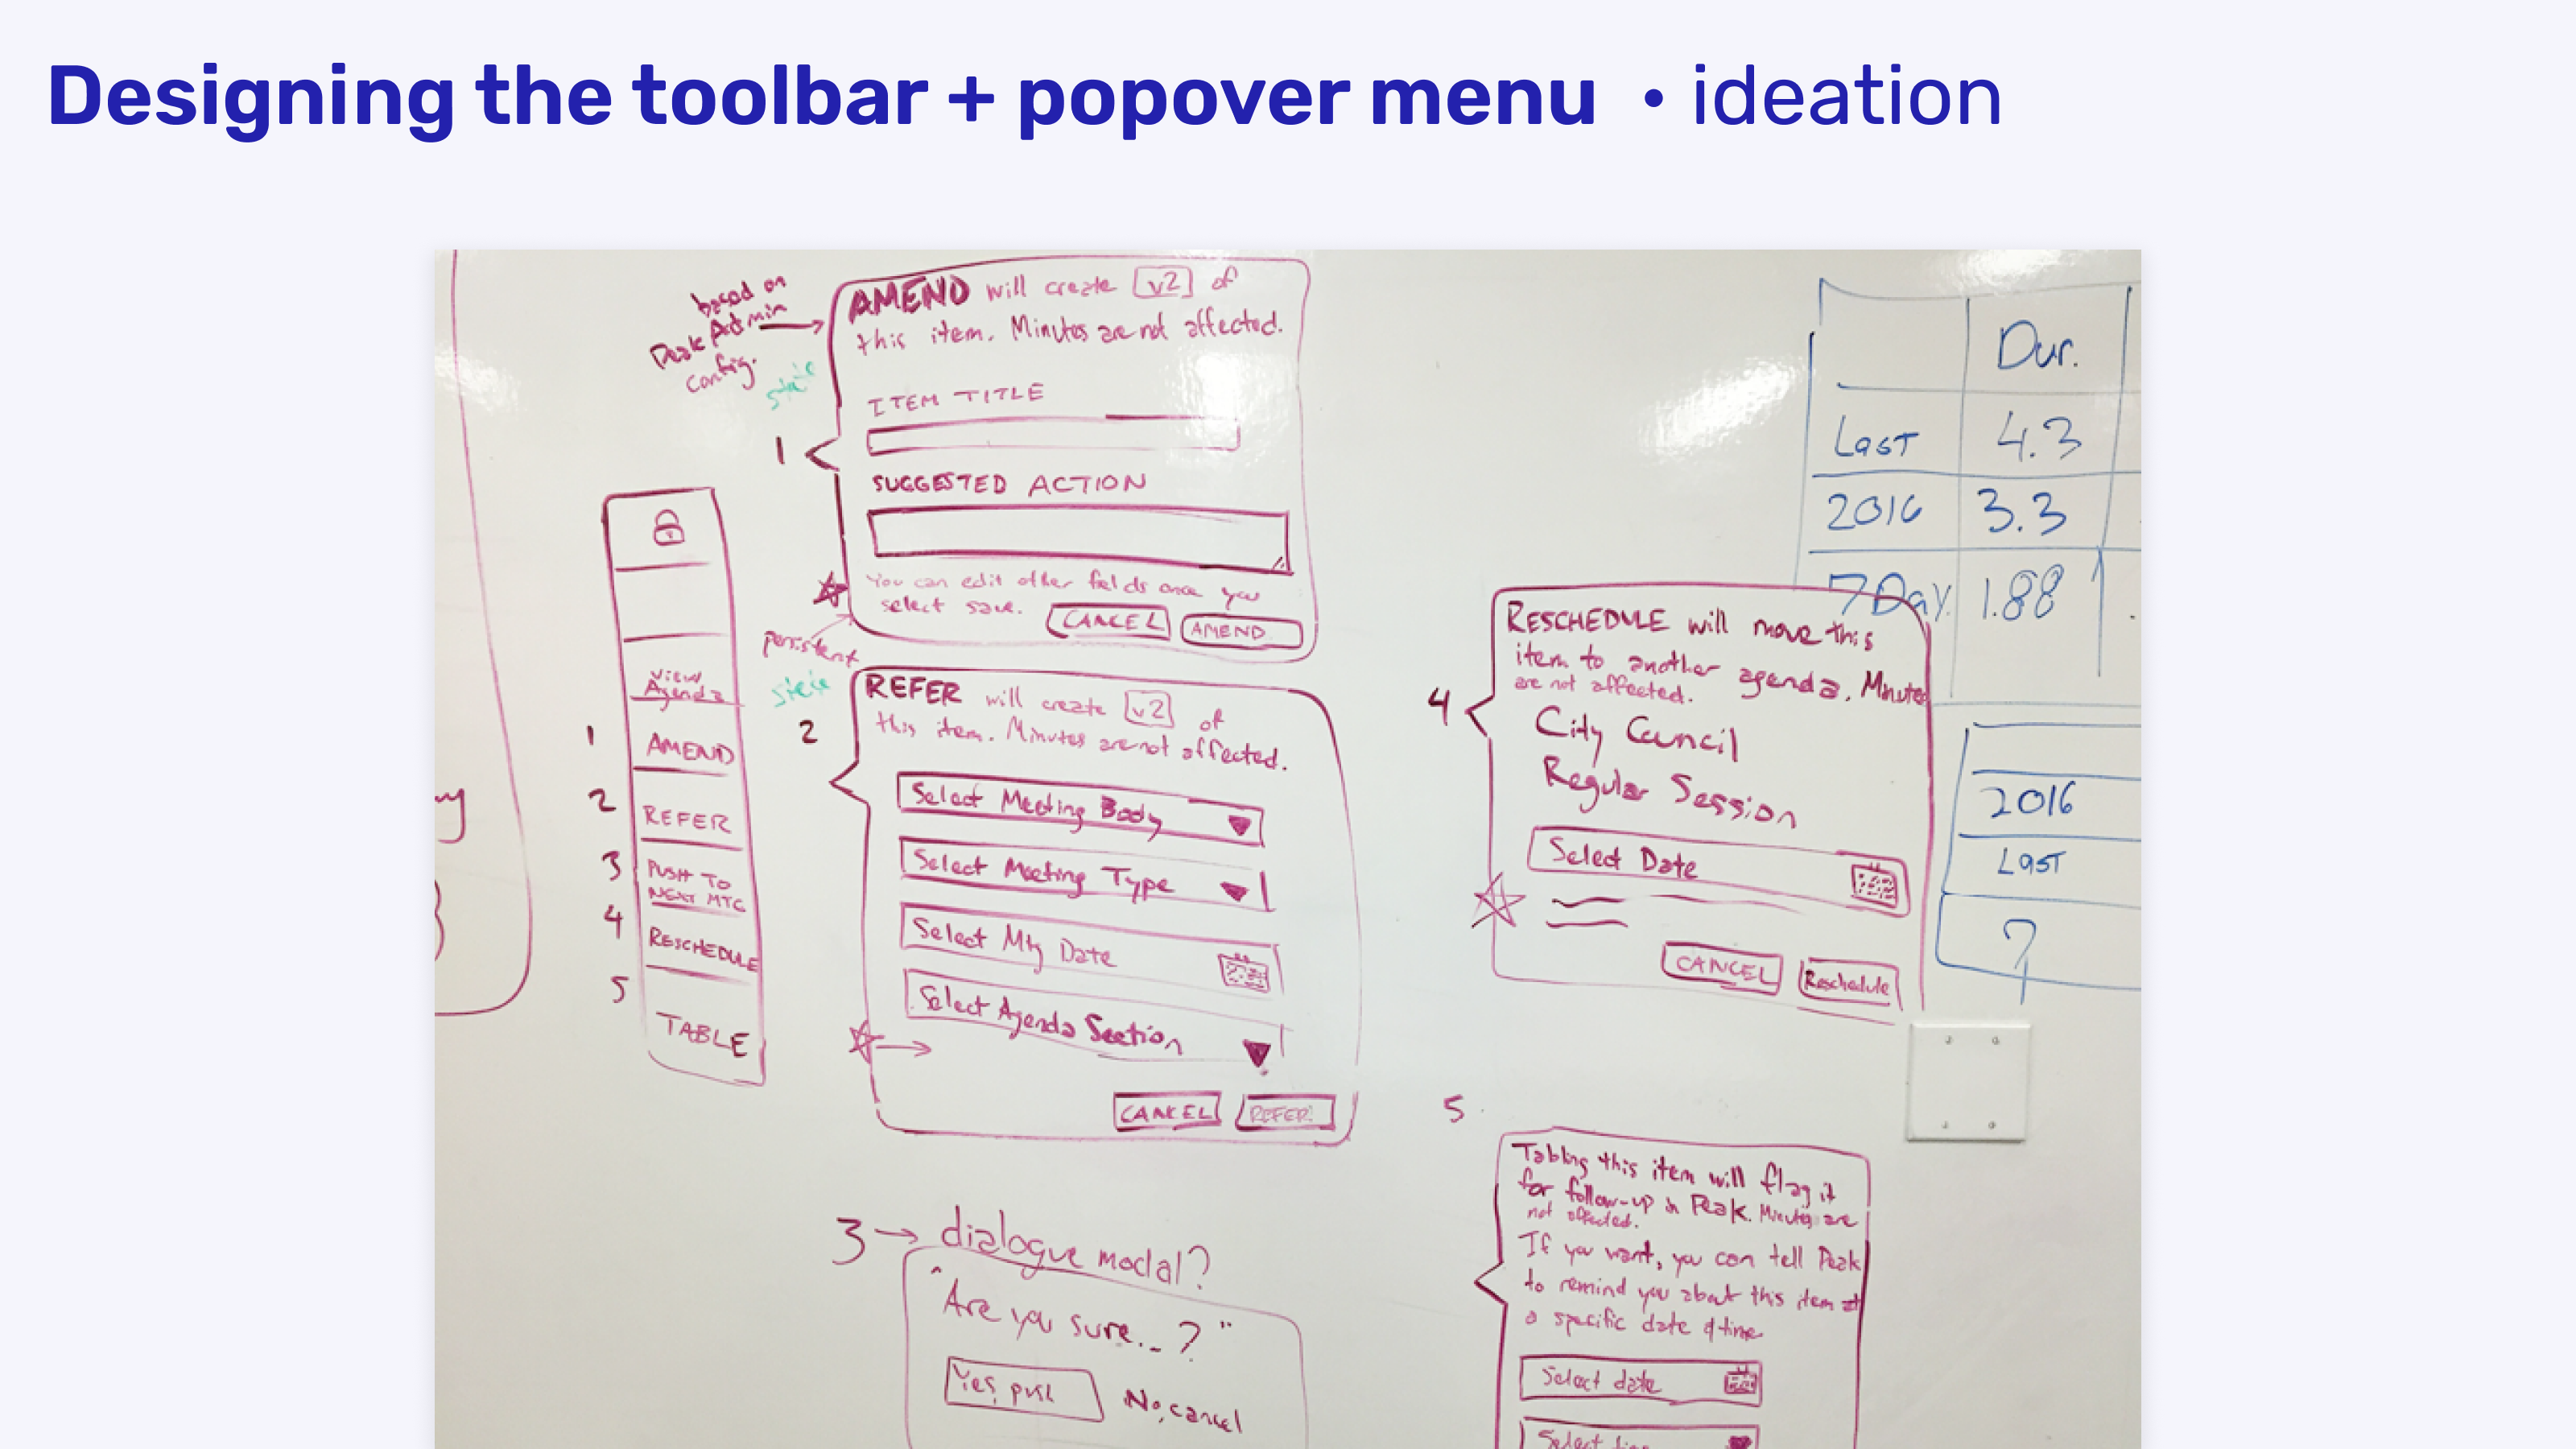 Designing the toolbar + popover menu • ideation
based on
Peak Admin
config.
state
1
AMEND will create v2 of
this item. Minutes are not affected.
ITEM TITLE
SUGGESTED ACTION
You can edit other fields once you
select save.
CANCEL
AMEND
persistent
View
Agenda
1 AMEND
2 REFER
3 PUSH TO
NEXT MTG
4 RESCHEDULE
5 TABLE
2
REFER will create v2 of
this item. Minutes are not affected.
Select Meeting Body
Select Meeting Type
Select Mtg Date
Select Agenda Section
CANCEL
REFER
3 → dialogue modal?
"Are you sure...?"
Yes, push
No, cancel
4
RESCHEDULE will move this
item to another agenda. Minutes
are not affected.
City Council
Regular Session
Select Date
CANCEL
Reschedule
5
Tabling this item will flag it
for follow-up in Peak. Minutes are
not affected.
If you want, you can tell Peak
to remind you about this item at
a specific date & time
Select date
Dur.
Last 4.3
2016 3.3
7 Day 1.88
2016
Last
7